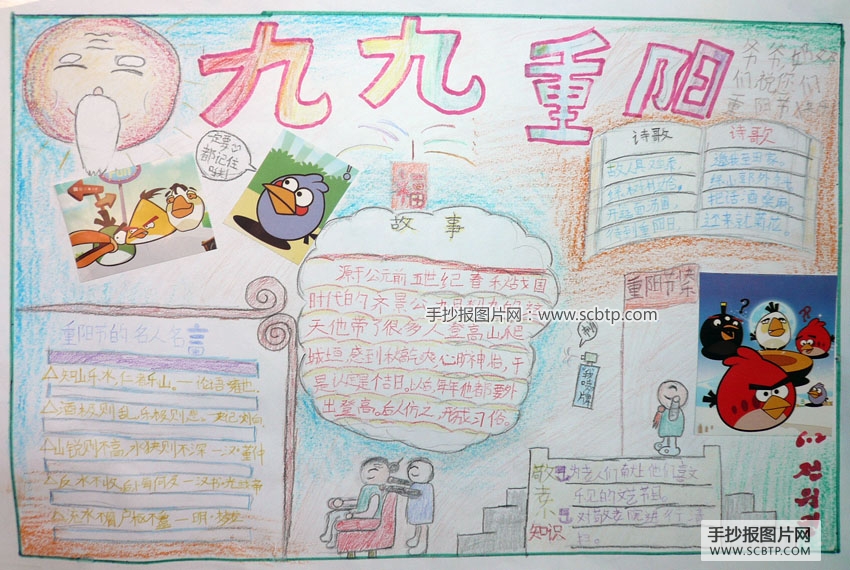 九九重阳
爷爷奶奶
们祝您们
重阳节快乐
一定要
都记住
哦!
福
诗歌
诗歌
故人具鸡黍
邀我至田家。
绿树村边合。
绿水郭外斜。
开轩面场圃。
把酒话桑麻。
待到重阳日。
还来就菊花。
故事
源于公元前五世纪春秋战国
时代的齐景公
天他带了很多人登高山爬
城垣感到秋高气爽心旷神怡,于
是认定是个吉日。以后,年年他都要外
出登高。后人仿之,形成习俗。
手抄报图片网:www.scbtp.com
重阳节的名人名言
知山乐水,仁者乐山。—论语·雍也
酒极则乱,乐极则悲。
山锐则不高,水狭则不深
反水不收,后悔何及—汉书·光武帝
流水不腐户枢不蠹—明·
重阳节
敬老知识
为老人们献上他们喜闻
乐见的文艺节目。
对敬老院进行
6.2
手抄报图片网
WWW.SCBTP.COM